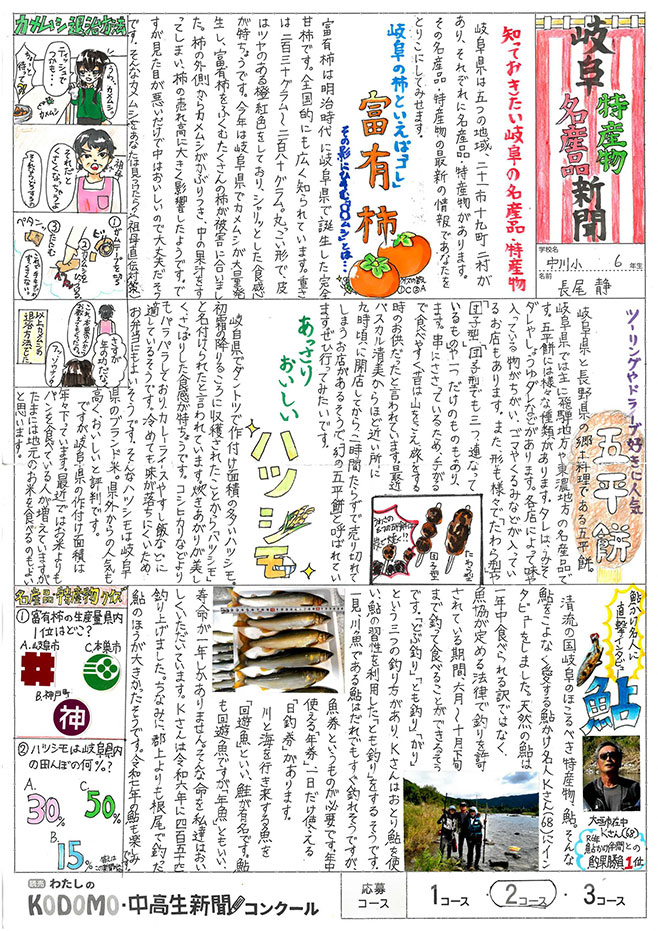 岐阜
特産物
名産品
新聞
学校名
中川小 6年生
名前
長尾 静
知っておきたい岐阜の名産品・特産物
岐阜県は五つの地域、二十一市十九町二村が
あり、それぞれに名産品・特産物があります。
その名産品・特産物の最新の情報であなたを
とりこにしてみせます。
岐阜の柿といえばコレ!
富有柿
富有柿は明治時代に岐阜県で誕生した完全
甘柿です。全国的にも広く知られています。重さ
は二百三十グラム〜二百八十グラム。丸っこい形で、皮
はツヤのある橙紅色をしており、シャリッとした食感
が特ちょうです。今年は岐阜県でカメムシが大量発
生し、富有柿をふくむたくさんの柿が被害に合いまし
た。柿の外側からカメムシがかぶりつき、中の果汁をす
ってしまい、柿の売れ高に大きく影響したようです。で
すが見た目が悪いだけで中はおいしいので大丈夫だそう
です。そんなカメムシをあなたは見つけたら?(祖母直伝対策)
カメムシ退治方法
うわ、カメムシ
祖母
それだと
ペタンッ
以上カメムシの
退治方法でした
ツーリングやドライブ好きに人気
五平餅
岐阜県と長野県の郷土料理である五平餅。
岐阜県では主に飛騨地方や東濃地方の名産品で
す。五平餅には様々な種類があります。タレは、みそ
ダレやしょうゆダレなどがあります。各店によって味や
入っている物がちがい、ゴマやくるみなどが入ってい
るお店もあります。また、形も様々でたわら型や
団子型、団子型でも三つ連なって
いるものや一つだけのものもあり
ます。串にささっているため、手がる
で食べやすく昔は山をこえ旅をする
時のお供だったと言われています。最近
バスカル清美からほど近い所に
九時頃に開店してから、二時間たらずで売り切れて
しまうお店があるそうで、幻の五平餅と呼ばれてい
ます。ぜひ行ってみたいです。
たわら型
団子型
あっさり
おいしい
ハツシモ
岐阜県でダントツで作付け面積の多いハツシモ。
初霜が降りるころに収穫されたことから「ハツシモ」
と名付けられたと言われています。炊きあがりが美し
く、さっぱりした食感が特ちょうです。コシヒカリなどより
もパラパラしており、カレーライスやすし飯などに
適しているそうです。冷めても味が落ちにくいため、
お弁当にもよいそうです。そんなハツシモは岐阜
県のブランド米。県外からの人気も
高く、おいしいと評判です。
ですが、岐阜県の作付け面積は
年々下っています。最近ではお米よりも
パンを食べている人が増えていますが、
たまには地元のお米を食べるのもよい
と思います。
鮎かけ名人に
直撃インタビュー
鮎
清流の国岐阜のほこるべき特産物、鮎。そんな
鮎をこよなく愛する鮎かけ名人Kさん(68)にイン
タビューをしました。天然の鮎は
一年中食べられる訳ではなく、
魚協が定める法律で釣りを許
されている期間、六月〜十月下旬
まで釣って食べることができるそう
です。「どぶ釣り」「とも釣り」「がり」
という三つの釣り方があり、Kさんはおとり鮎を使
い、鮎の習性を利用した「とも釣り」をするそうです。
一見、川魚である鮎はだれでもすぐ釣れそうですが、
魚券というものが必要です。年中
使える「年券」、一日だけ使える
「日釣券」があります。
川と海を行き来する魚を
「回遊魚」といい、鮭が有名です。鮎
も回遊魚ですが、「年魚」ともいい、
寿命が一年しかありません。そんな命を私達はおい
しくいただいています。Kさんは令和六年に四百五十四
釣り上げました。ちなみに、郡上よりも根尾で釣った
鮎のほうが大きかったそうです。令和七年の鮎も楽しみ
大垣市在中
Kさん(68)
R6年
鮎かけ仲間との
釣果勝負1位
名産品・特産物クイズ
①富有柿の生産量県内
1位はどこ?
A.岐阜市
C.本巣市
B.神戸町
②ハツシモは岐阜県内
の田んぼの何%?
A.
30%
C.
50%
B.
15%
読売 わたしの
KODOMO・中高生新聞コンクール
応募
コース
1コース・2コース・3コース